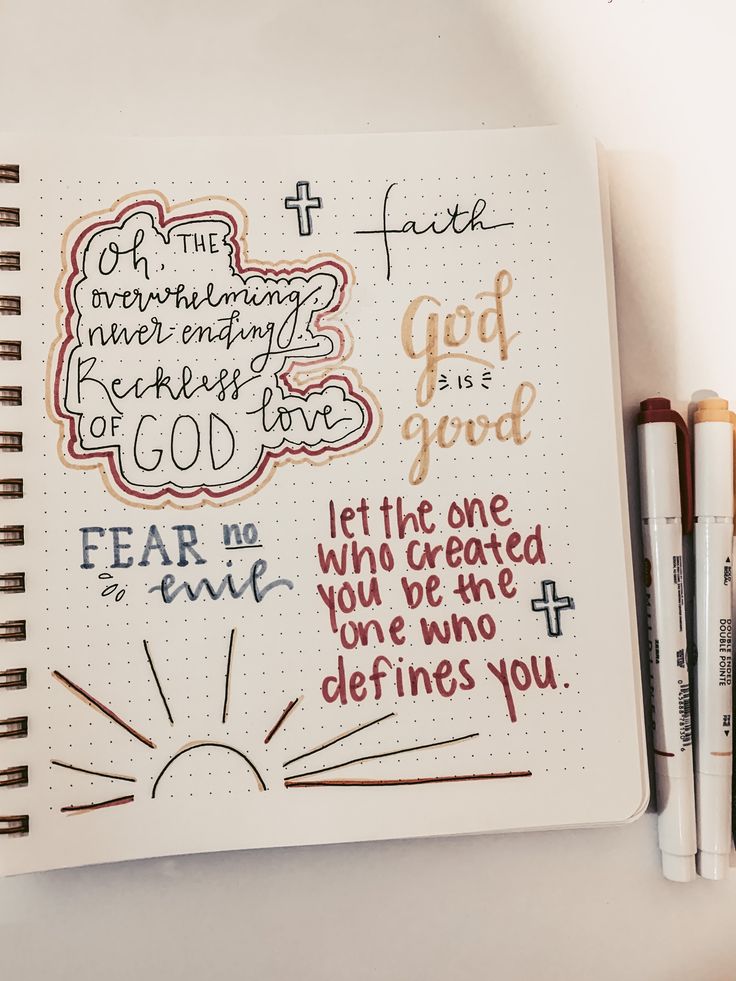 oh, THE
overwhelming,
never-ending,
Reckless
love
OF GOD
faith
God
IS
good
FEAR no
evil
let the one
who created
you be the
one who
defines you.
MILDLINER
ZEBRA
DOUBLE ENDED
DOUBLE POINTE